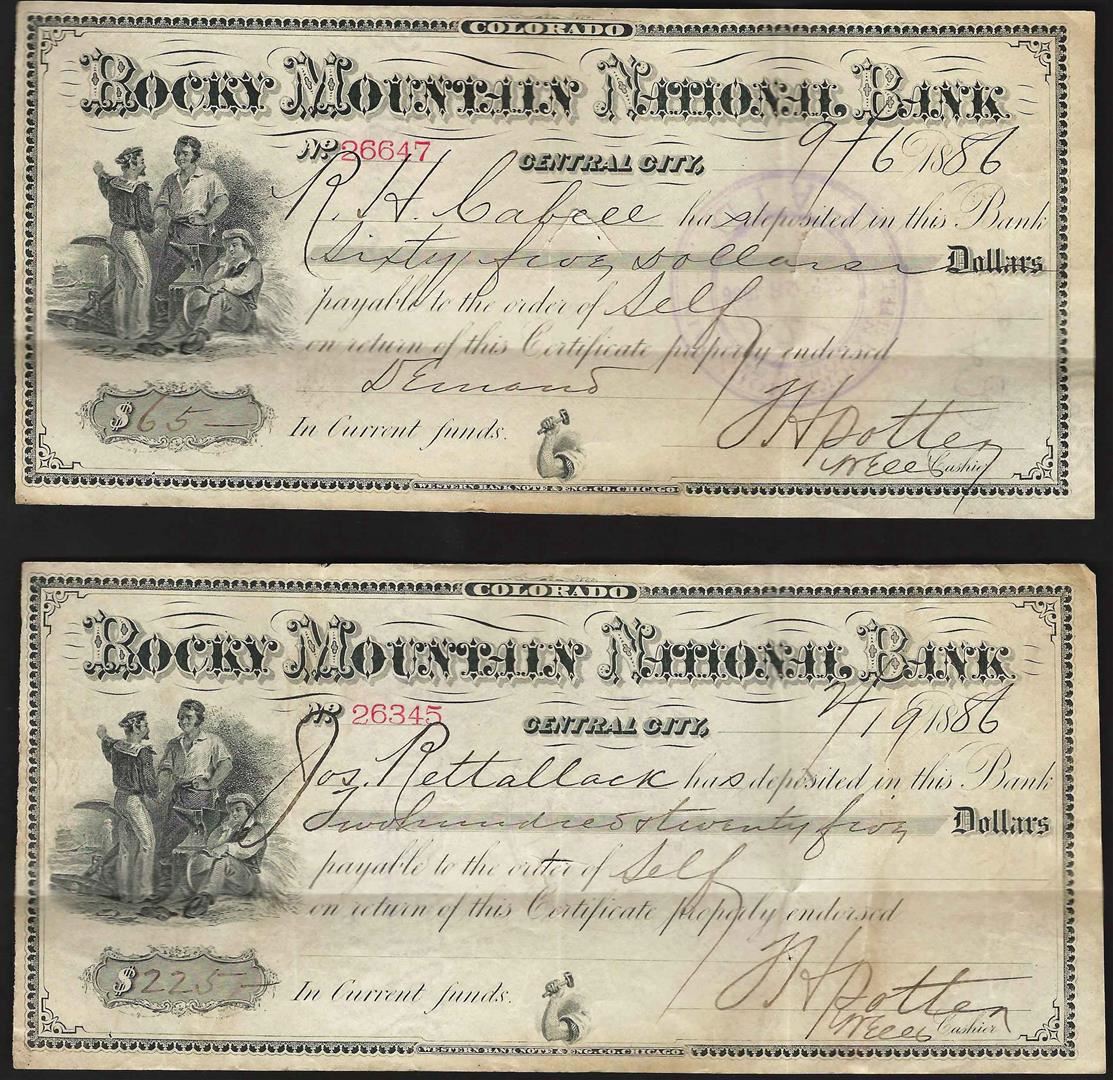 COLORADO
ROCKY MOUNTAIN NATIONAL BANK
No 26647 CENTRAL CITY, 9/6 1886
R. H. Cabell has deposited in this Bank
Sixty five Dollars Dollars
payable to the order of Self
on return of this Certificate properly endorsed
Demand
$65— In Current funds. Potter
Cashier
WESTERN BANK NOTE & ENG. CO. CHICAGO
COLORADO
ROCKY MOUNTAIN NATIONAL BANK
No 26345 CENTRAL CITY, 19 1886
Jos Rettallack has deposited in this Bank
Two hundred & twenty five Dollars
payable to the order of Self
on return of this Certificate properly endorsed
$225— In Current funds. Potter
Cashier
WESTERN BANK NOTE & ENG. CO. CHICAGO